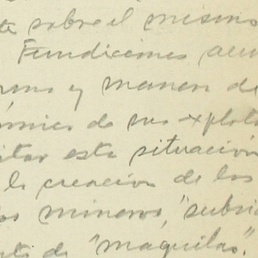 te sobre el mismo
Fundiciones
y manera de
ómico de su explota
itar esta situación
la creacion de los
os mineros, "subsi
to de "maquilas".